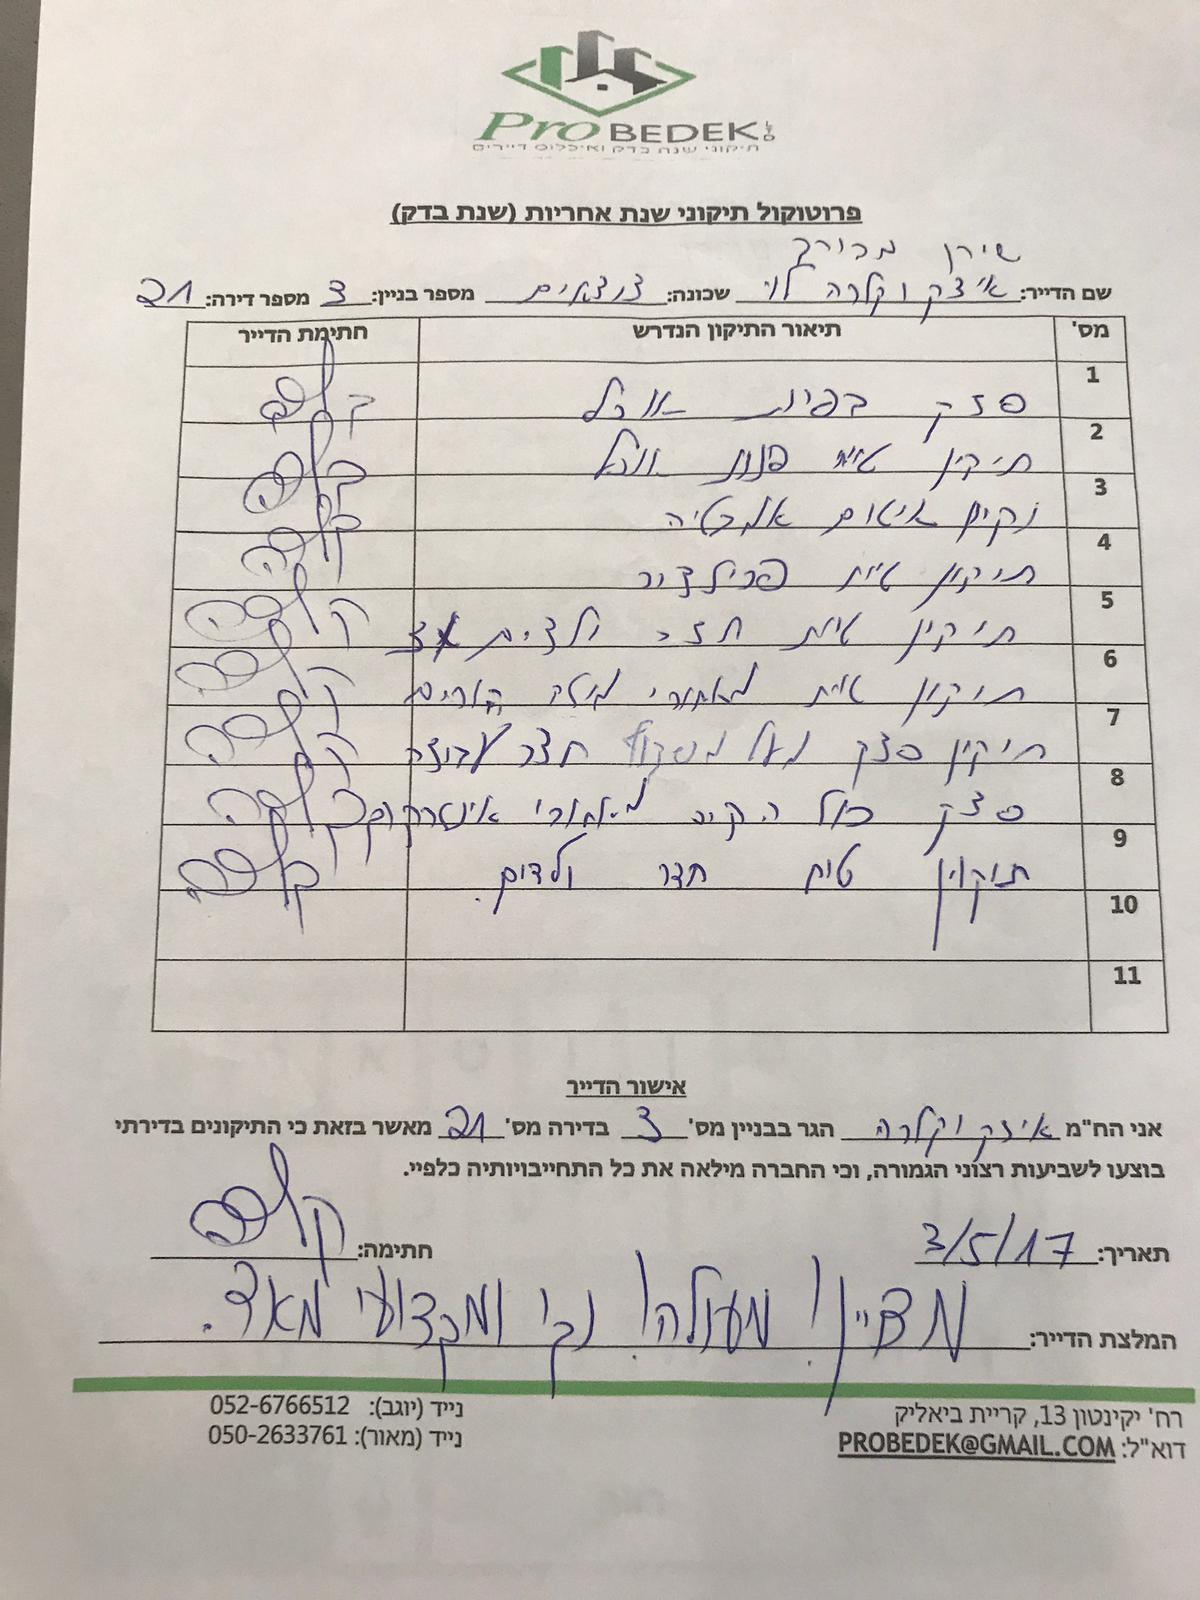 ProBEDEK LTD
תיקוני שנת בדק ואיכלוס דיירים
פרוטוקול תיקוני שנת אחריות (שנת בדק)
שירן
שם הדייר: איציק וקלרה לוי שכונה: מספר בניין: 3 מספר דירה: 21
מס' תיאור התיקון הנדרש חתימת הדייר
1 סדק בפינת אוכל
2 תיקון טיח פינת אוכל קלרה
3 ניקיון איטום אמבטיה קלרה
4 תיקון טיח קלרה
5 תיקון טיח חדר ילדים קלרה
6 תיקון טיח מאחורי מיטה הורים קלרה
7 תיקון סדק מעל משקוף חדר עבודה קלרה
8 סדק כול הקיר מאחורי קלרה
9 תיקון טיח חדר ילדים. קלרה
10
11
אישור הדייר
אני הח"מ איציק וקלרה הגר בבניין מס' 3 בדירה מס' 21 מאשר בזאת כי התיקונים בדירתי
בוצעו לשביעות רצוני הגמורה, וכי החברה מילאה את כל התחייבויותיה כלפיי.
תאריך: 3/5/17 חתימה: קלרה
המלצת הדייר: מצויין! מעולה! נקי ומקצועי מאד.
רח' יקינטון 13, קריית ביאליק נייד (יוגב): 052-6766512
דוא"ל: PROBEDEK@GMAIL.COM נייד (מאור): 050-2633761